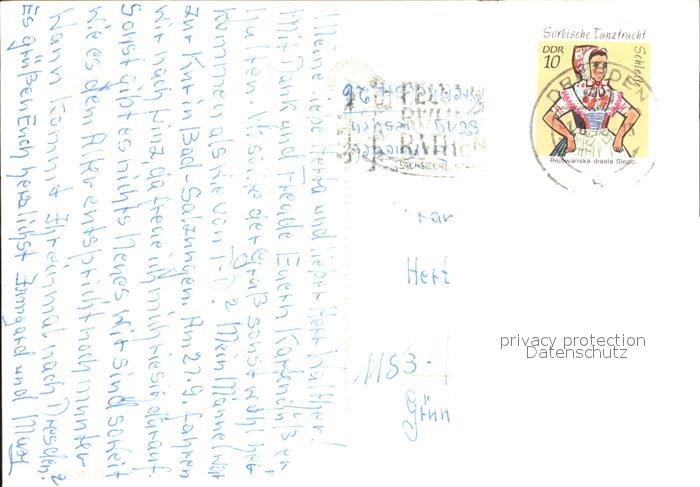 Meine liebe Herta und lieber Herr Walther!
Mit Dank und Freude Euern Kartengruß er-
halten. Wo sollte der Gruß sonst wohl her-
kommen als wie von D.? Mein Männel war
zur Kur in Bad-Salzungen. Am 27.9. fahren
wir nach Linz da freue ich mich riesig darauf.
Sonst gibt es nichts Neues wir sind soweit
wie es dem Alter entspricht noch munter
Wann kommt Ihr einmal nach Dresden?
Es grüßen Euch herzlichst Irmgard und Max
FELSEN
BÜHNE
RATHEN
SÄCHSISCHE
Sorbische Tanztracht
DDR
10
Schleife
DRESDEN
Rejowanska drasta Slepo
Hert
1183
Grün
privacy protection
Datenschutz